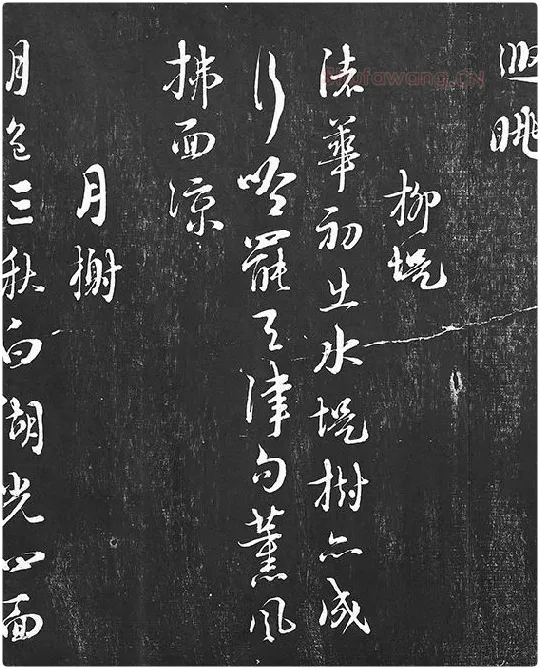 眺
柳堤
渚華初出水堤樹亦成
行吟罷天津句薰風
拂面涼
月榭
月色三秋白湖光四面